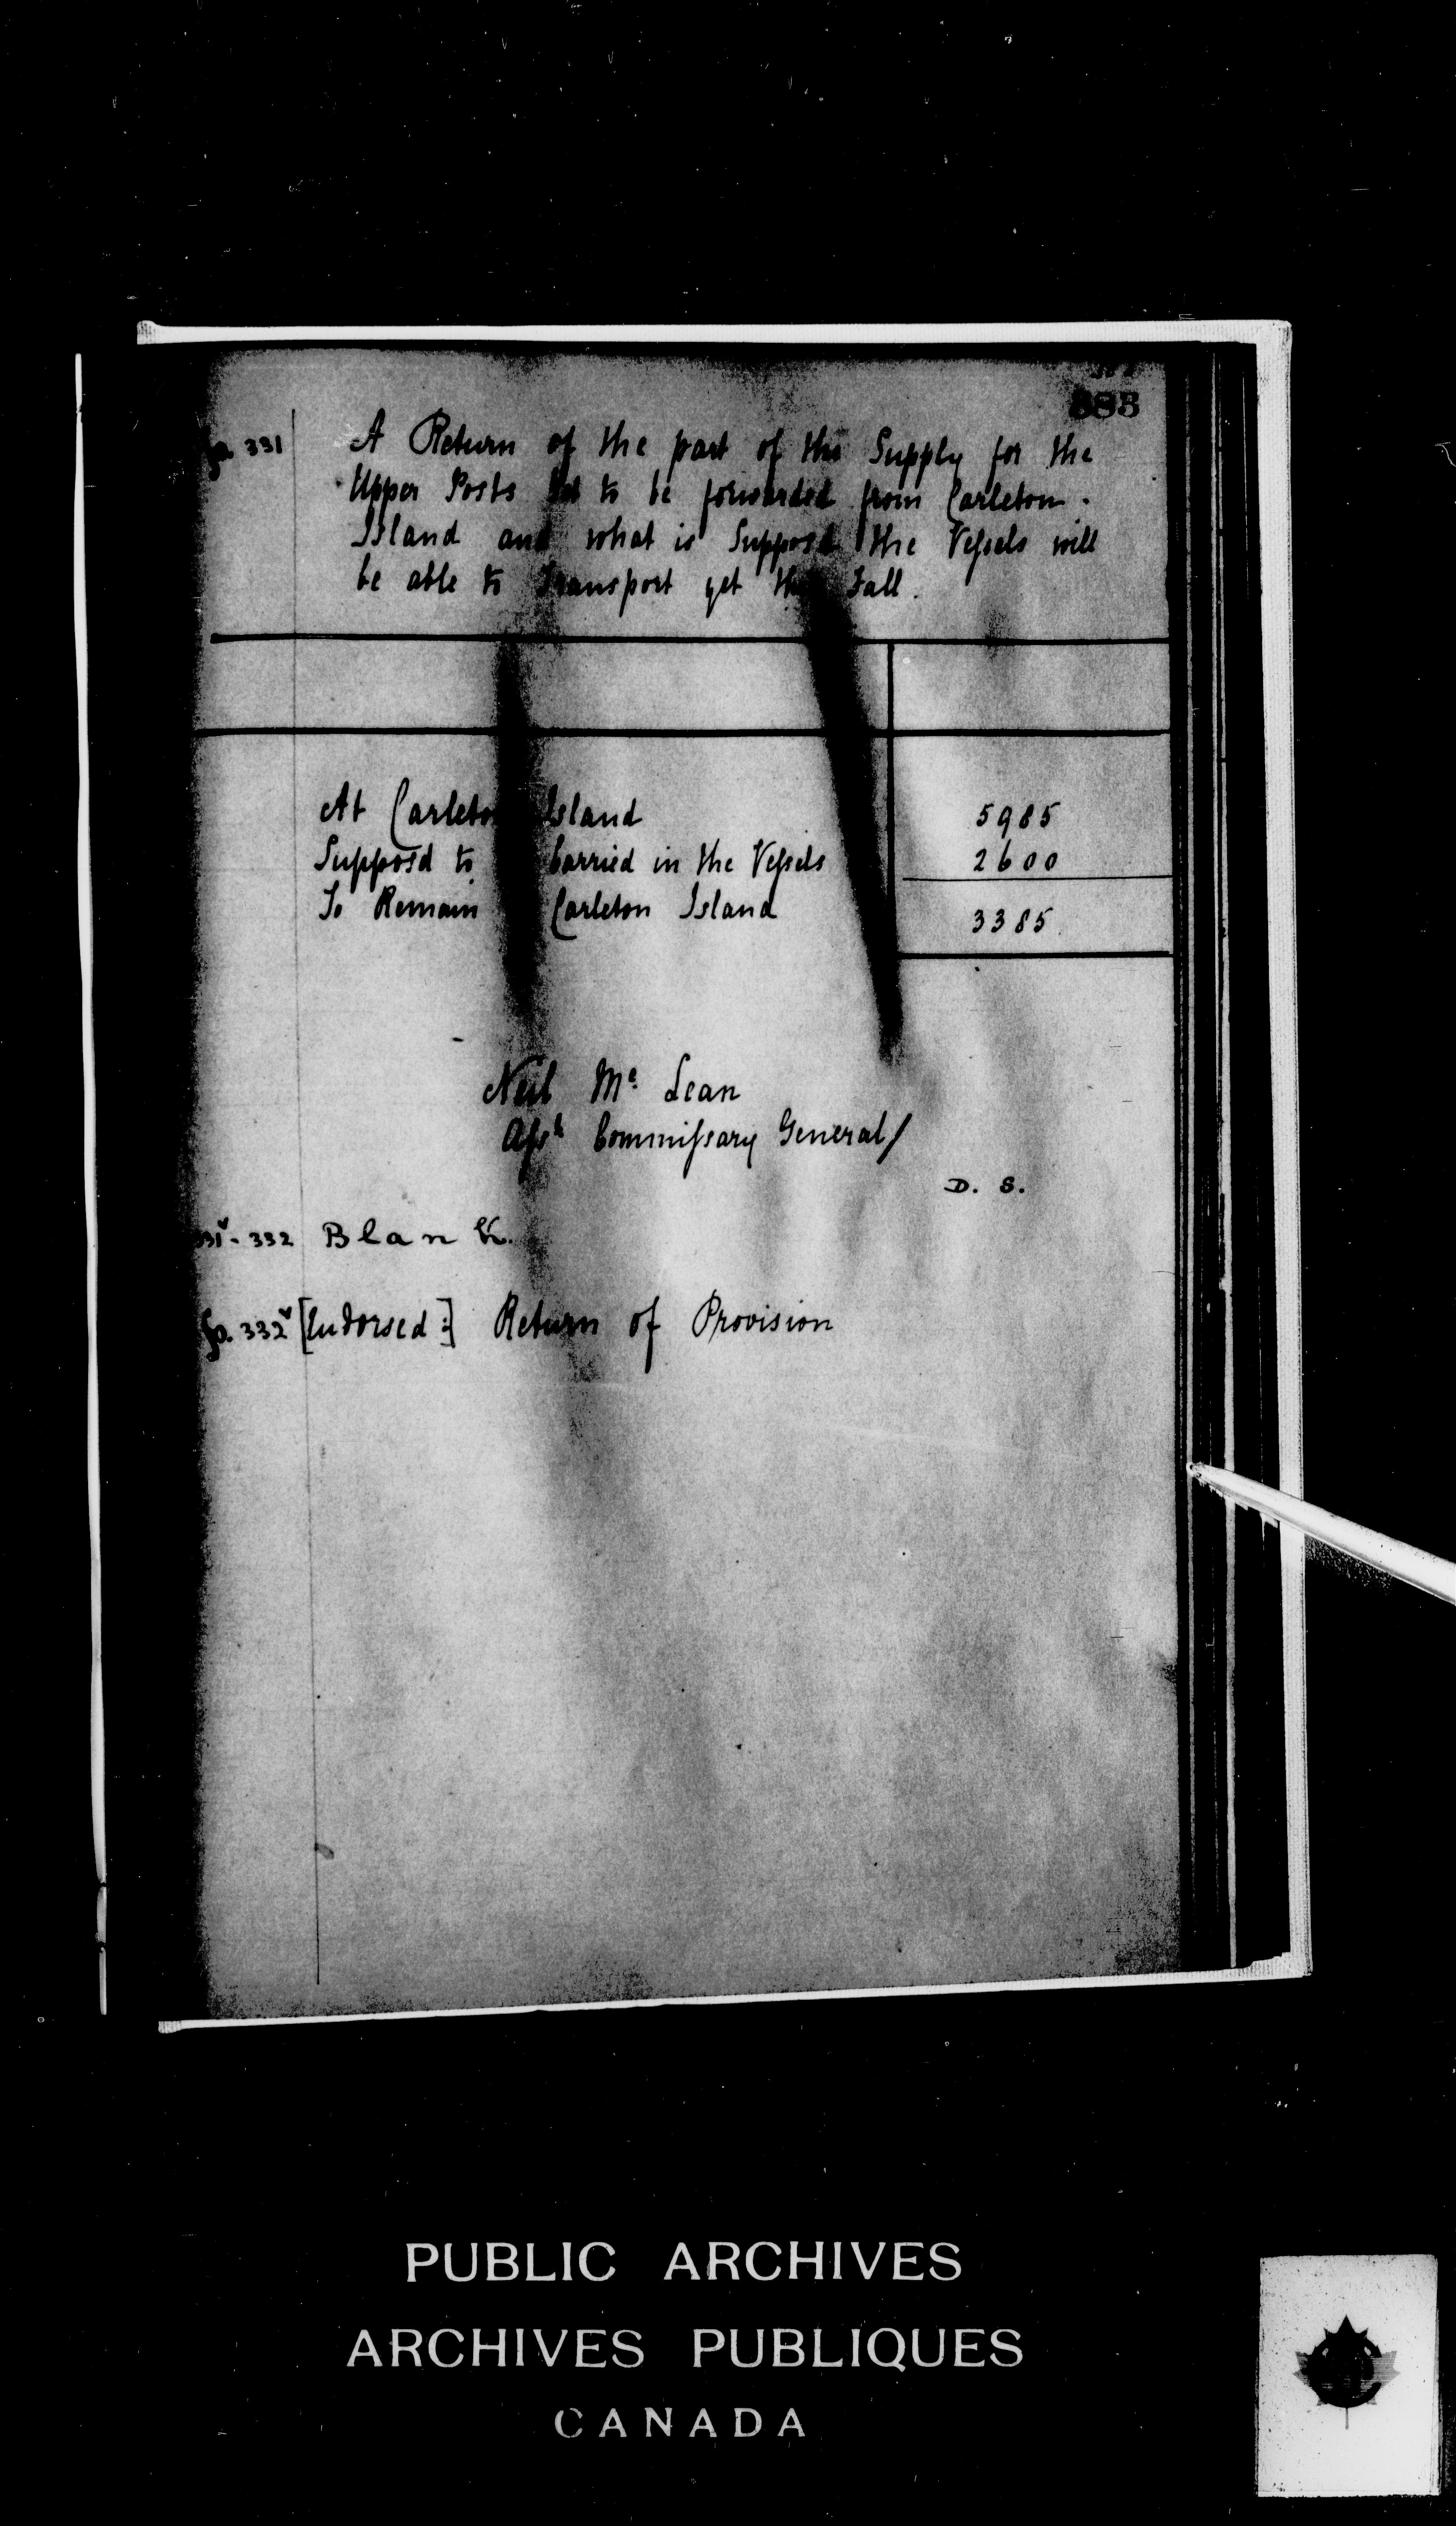 383
fo. 331 A Return of the part of the Supply for the
Upper Posts to be forwarded from Carleton
Island and what is Supposd the Veſsels will
be able to Transport yet this Fall.
At Carleton Island 5985
Supposd to Carried in the Veſsels 2600
To Remain Carleton Island 3385
Neil Mc Lean
Aſst Commiſsary General/
D. S.
331v - 332 Blank.
fo. 332v [Endorsed:] Return of Provision
PUBLIC ARCHIVES
ARCHIVES PUBLIQUES
CANADA